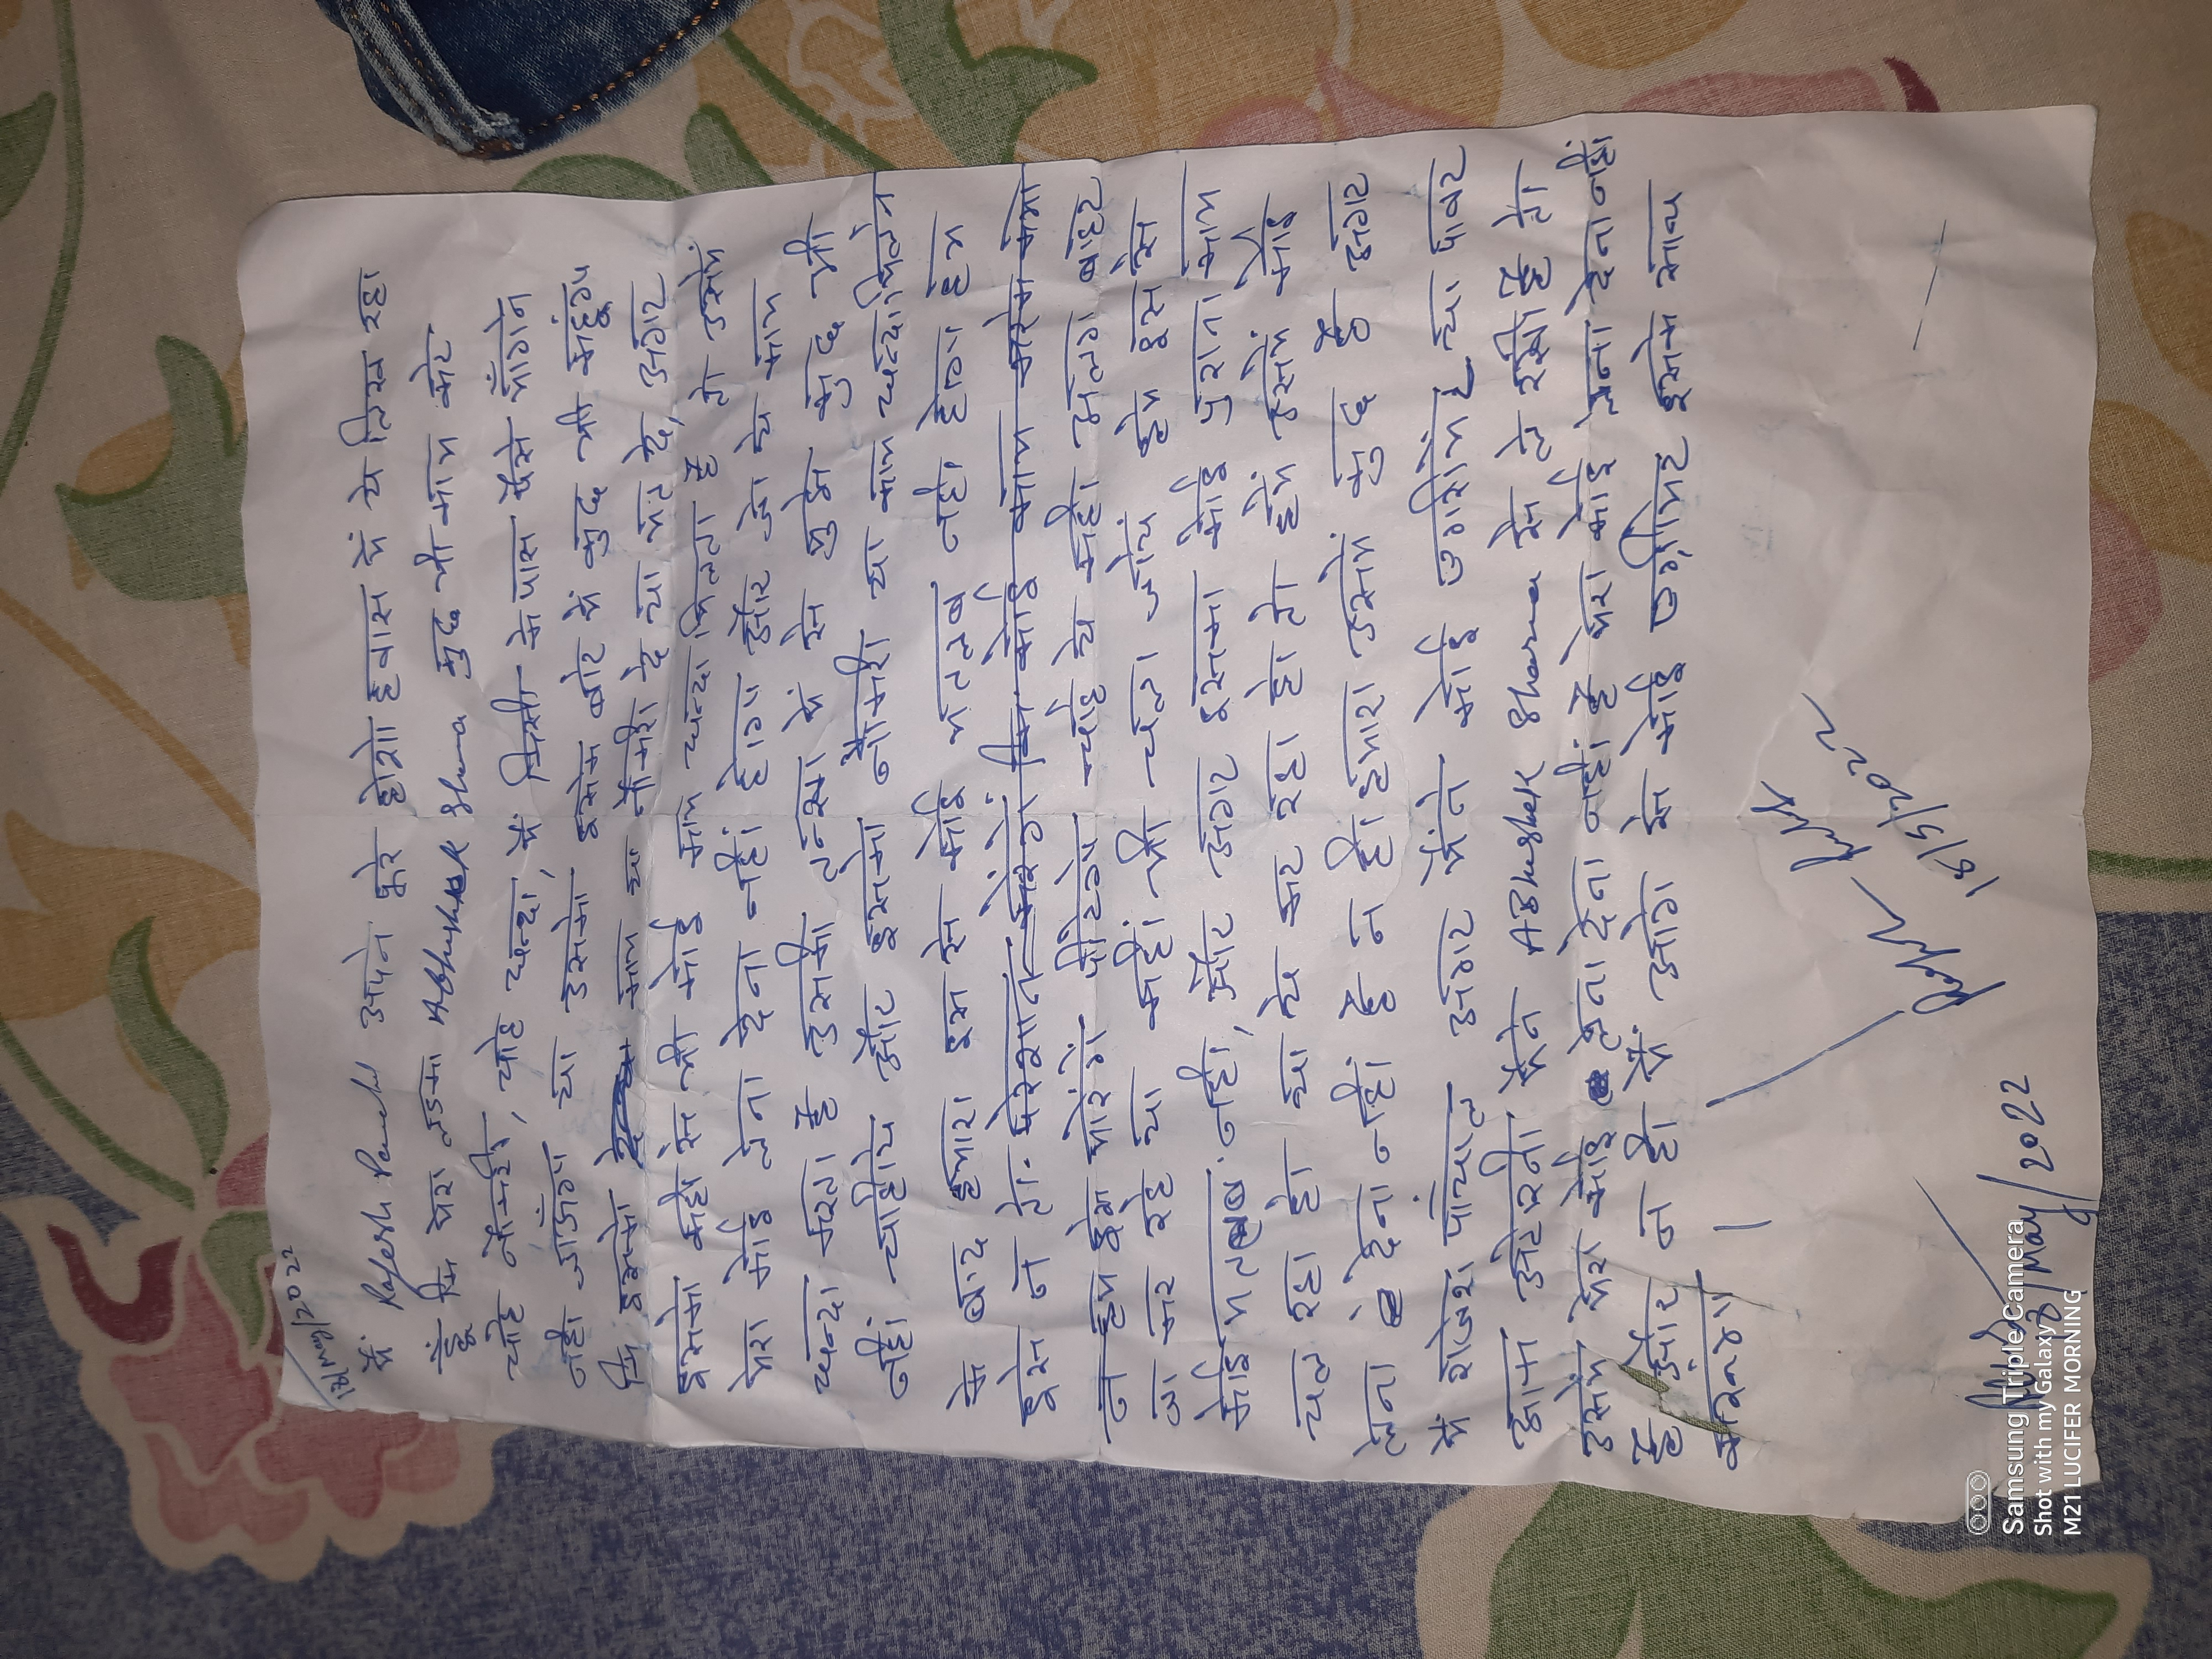 18/May/2022
मैं Rajesh Panchal अपने पूरे होशो हवास में ये लिख रहा
हूँ कि मेरा लडका Abhishek Sharma कुछ भी काम करे
चाहे नौकरी, चाहे धन्दा, मैं किसी के पास पैसे माँगने
नही जाऊँगा या उसको इसके बारे में कुछ भी कहूंगा
कि इसको काम या नौकरी दे या मत दे, अगर
इसको कही से भी कोई काम धन्दा मिलता है तो उसमें
मेरा कोई लेना देना नहीं होगा और जो ये काम
धन्दा करता है उसकी तन्खा में से मुझे कुछ भी
नहीं चाहीये और इसको नौकरी या काम धन्दा मिलने
के बाद हमारा इस से कोई मतलब नही होगा हम
इसे न तो परेशान करेंगें कि कोई काम करके
न हम इसे मारेंगें पीटेगे चाहे ये कही अलग बाहर
जा कर रहे या कहीं भी चला जाये हमे इस से
कोई मतलब नही, और अगर इसका कोई पुराना काम
चल रहा हो या ये कर रहा हो तो हमें उसमें कोई
लेना देना नहीं है न ही हमारा उसमें कुछ है अगर
मैं राजेश पांचाल अगर मैंने कोई एगरीमेंट या पावर
आफ अटोरनी मैने ABhishek Sharma से ले रखी है तो
उसमें मेरा कोई लेना देना नहीं है मेरा कोई लेना देना नहीं
है और न ही मैं आगे से कोई एग्रीमेंट इसके साथ
करूंगा
Rajesh
18/5/2022
18/May/2022
Samsung Triple Camera
Shot with my Galaxy
M21 LUCIFER MORNING